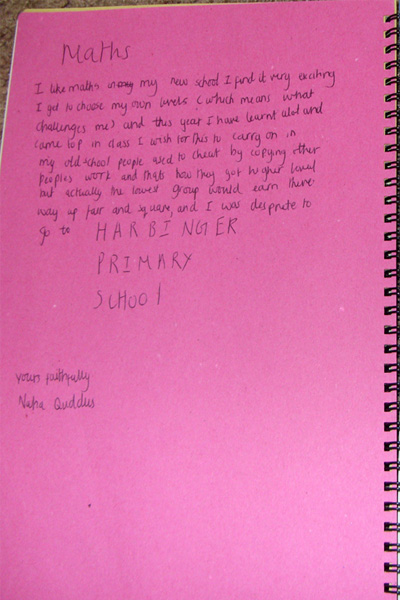 Maths
I like maths in my new school I find it very exciting
I get to choose my own levels (which means what
challenges me) and this year I have learnt alot and
came top in class I wish for this to carry on in
my old school people used to cheat by copying other
peoples work and thats how they got higher level
but actually the lowest group would earn there
way up fair and square, and I was desprate to
go to HARBINGER
PRIMARY
SCHOOl
yours faithfully
Quddus